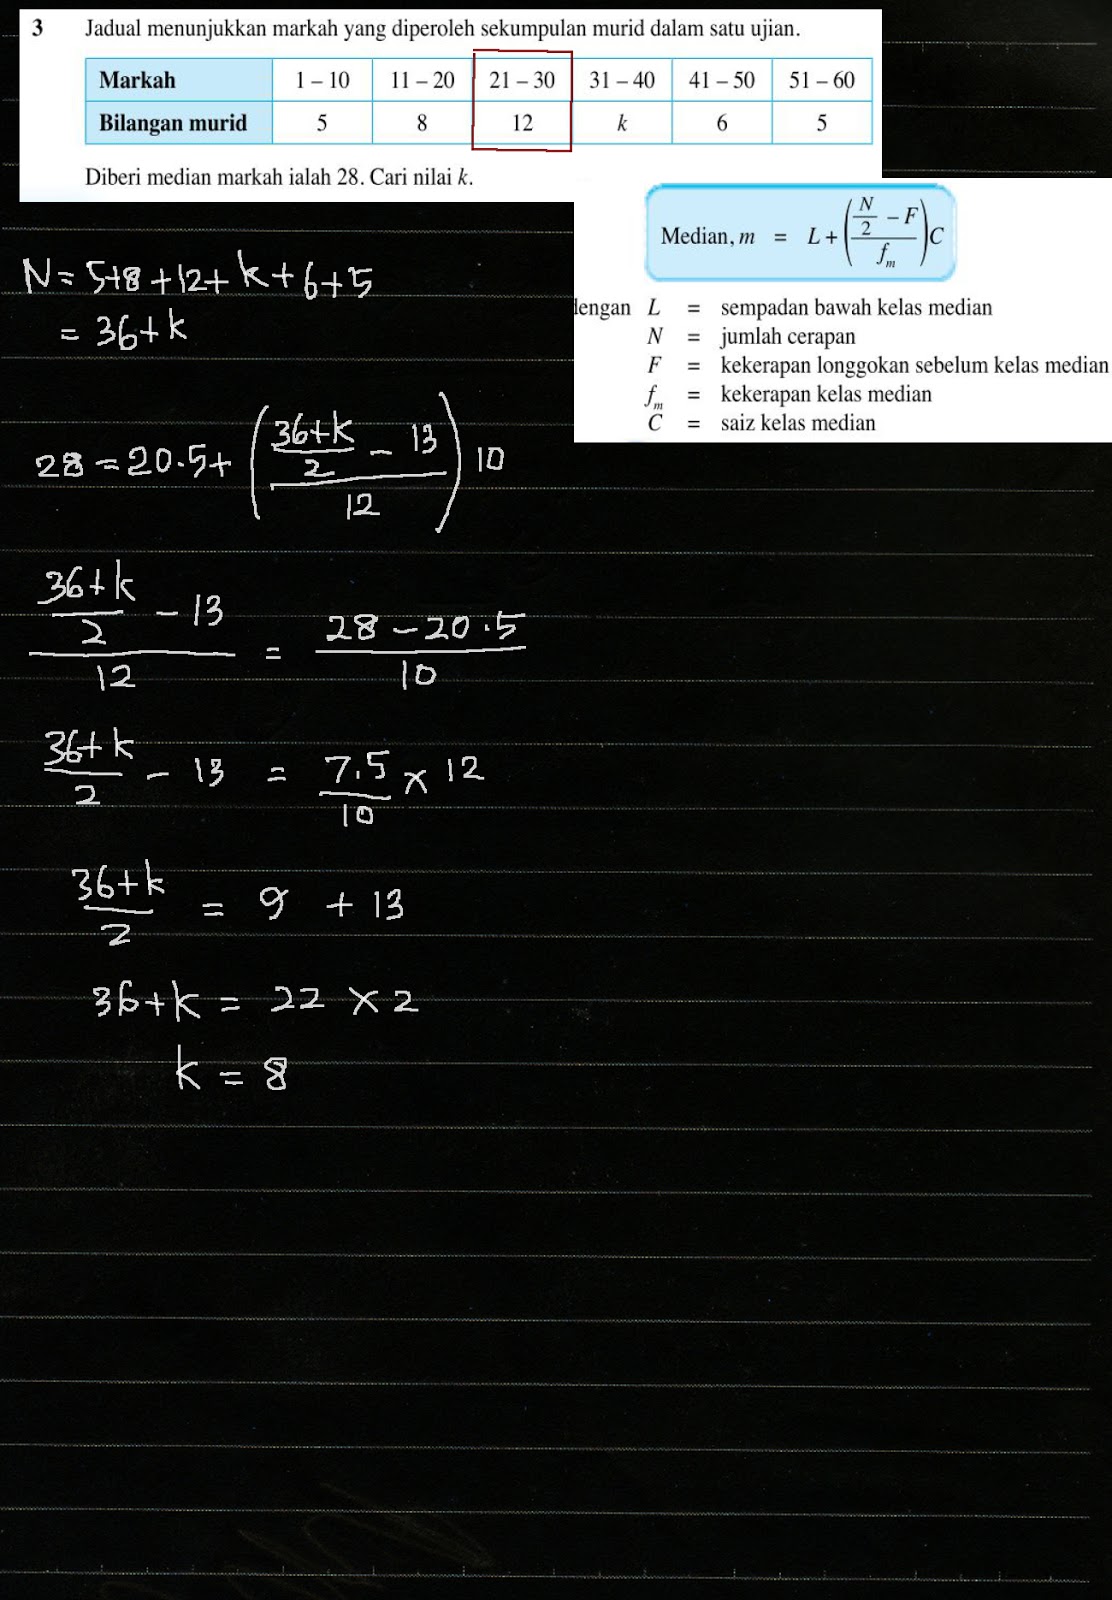 3 Jadual menunjukkan markah yang diperoleh sekumpulan murid dalam satu ujian.
Markah 1 – 10 11 – 20 21 – 30 31 – 40 41 – 50 51 – 60
Bilangan murid 5 8 12 k 6 5
Diberi median markah ialah 28. Cari nilai k.
Median, m = L + ((N/2 – F)/f_m) C
dengan L = sempadan bawah kelas median
N = jumlah cerapan
F = kekerapan longgokan sebelum kelas median
f_m = kekerapan kelas median
C = saiz kelas median
N = 5+8+12+k+6+5
= 36+k
28 = 20.5 + (((36+k)/2 – 13)/12) 10
((36+k)/2 – 13)/12 = (28 – 20.5)/10
(36+k)/2 – 13 = 7.5/10 × 12
(36+k)/2 = 9 + 13
36+k = 22 × 2
k = 8